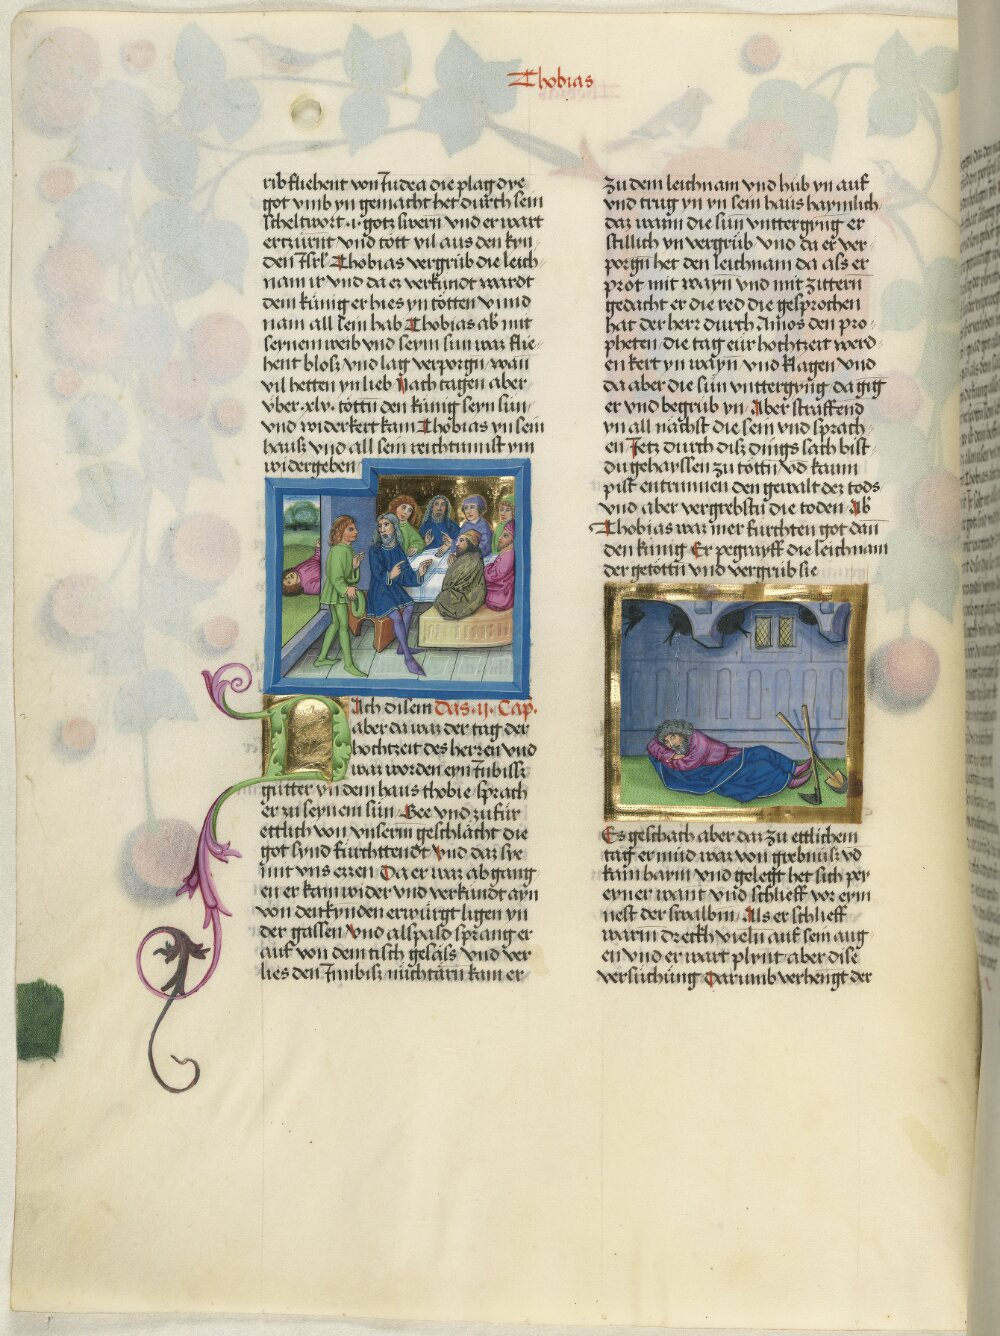 Thobias
rib fliehent von Judea die plag dye
got vmb yn gemacht het durch sein
scheltwort .i. gotz swern vnd er wart
ertzürnt vnd tött vil aus den kyn
den Jsrl Thobias vergrüb die leich
nam ir vnd da es verkündt wardt
dem künig er hies yn tötten vnnd
nam all sein hab Thobias ab mit
seynem weib vnd seym sun was flie
hent blosz vnd lag verporgn wan
vil hetten yn lieb Nach tagen aber
vber .xlv. töttn den künig seyn sün
vnd widerkert kam Thobias yn sein
hausz vnd all sein reichtum ist ym
widergeben
Nach disem das .ij. Cap.
aber da was der tag der
hochtzeit des herren vnd
was worden eyn Jnbisz
gütter yn dem haus thobie sprach
er zu seynem sün Gee vnd zu für
ettlich von vnserm geschlächt die
got synd fürchttendt vnd das sye
mit vns essen Da er was abgang
en er kam wider vnd verkundt ayn
von den kynden erwürgt ligen yn
der gassen Vnd alspald sprang er
auf von dem tisch gesäss vnd ver
lies den Jmbisz nüchtärn kam er
zu dem leichnam vnd hüb yn auf
vnd trug yn yn sein haus haymlich
das wann die sun vnttergyng er
stillich yn vergrüb vnd da er ver
porgn het den leichnam da als er
prot mit wayn vnd mit zittern
gedacht er die red die gesprochen
hat der herr durch Amos den pro
pheten die tag eür hochtzeit werd
en kert yn wayn vnd klagen vnd
da aber die sün vnttergyng da gig
er vnd begrüb yn Aber straffend
yn all nächst die sein vnd sprach
en Jetz durch disz dings sach bist
du gehayssen zu töttn vd kaum
pist entrunnen den gewalt des tods
vnd aber vergrebstu die toden Ab
Thobias was mer fürchten got dan
den künig Er pegrayff die leichnam
der getöttn vnd vergrüb sie
Es geschach aber das zu ettlichem
tag er müd was von grebnüs vd
kam haym vnd gelegt het sich pey
eyner want vnd schlieff vor eym
nest der swalbm Als er schlieff
warm dreckh vieln auf sein aug
en vnd er wart plynt aber dise
versüchung Darumb verhengt der